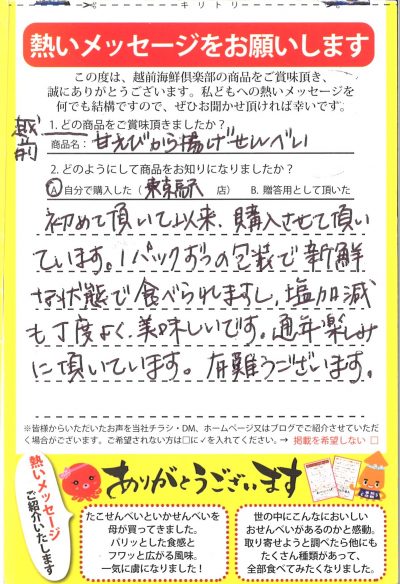 キリトリ
熱いメッセージをお願いします
この度は、越前海鮮倶楽部の商品をご賞味頂き、
誠にありがとうございます。私どもへの熱いメッセージを
何でも結構ですので、ぜひお聞かせ頂ければ幸いです。
1. どの商品をご賞味頂きましたか？
越前
商品名：甘えびから揚げせんべい
2. どのようにして商品をお知りになりましたか？
A 自分で購入した（東京駅 店） B. 贈答用として頂いた
初めて頂いて以来、購入させて頂い
ています。1パックずつの包装で新鮮
な状態で食べられますし、塩加減
も丁度よく、美味しいです。通年楽しみ
に頂いています。有難うございます。
※皆様からいただいたお声を当社チラシ・DM、ホームページ又はブログでご紹介させていただ
く場合がございます。ご希望されない方は□に✓を入れてください。→ 掲載を希望しない □
熱いメッセージ
ご紹介いたします
ありがとうございます
たこせんべいといかせんべいを
母が買ってきました。
パリッとした食感と
フワッと広がる風味。
一気に虜になりました！
世の中にこんなにおいしい
おせんべいがあるのかと感動。
取り寄せようと調べたら他にも
たくさん種類があって、
全部食べてみたくなりました。